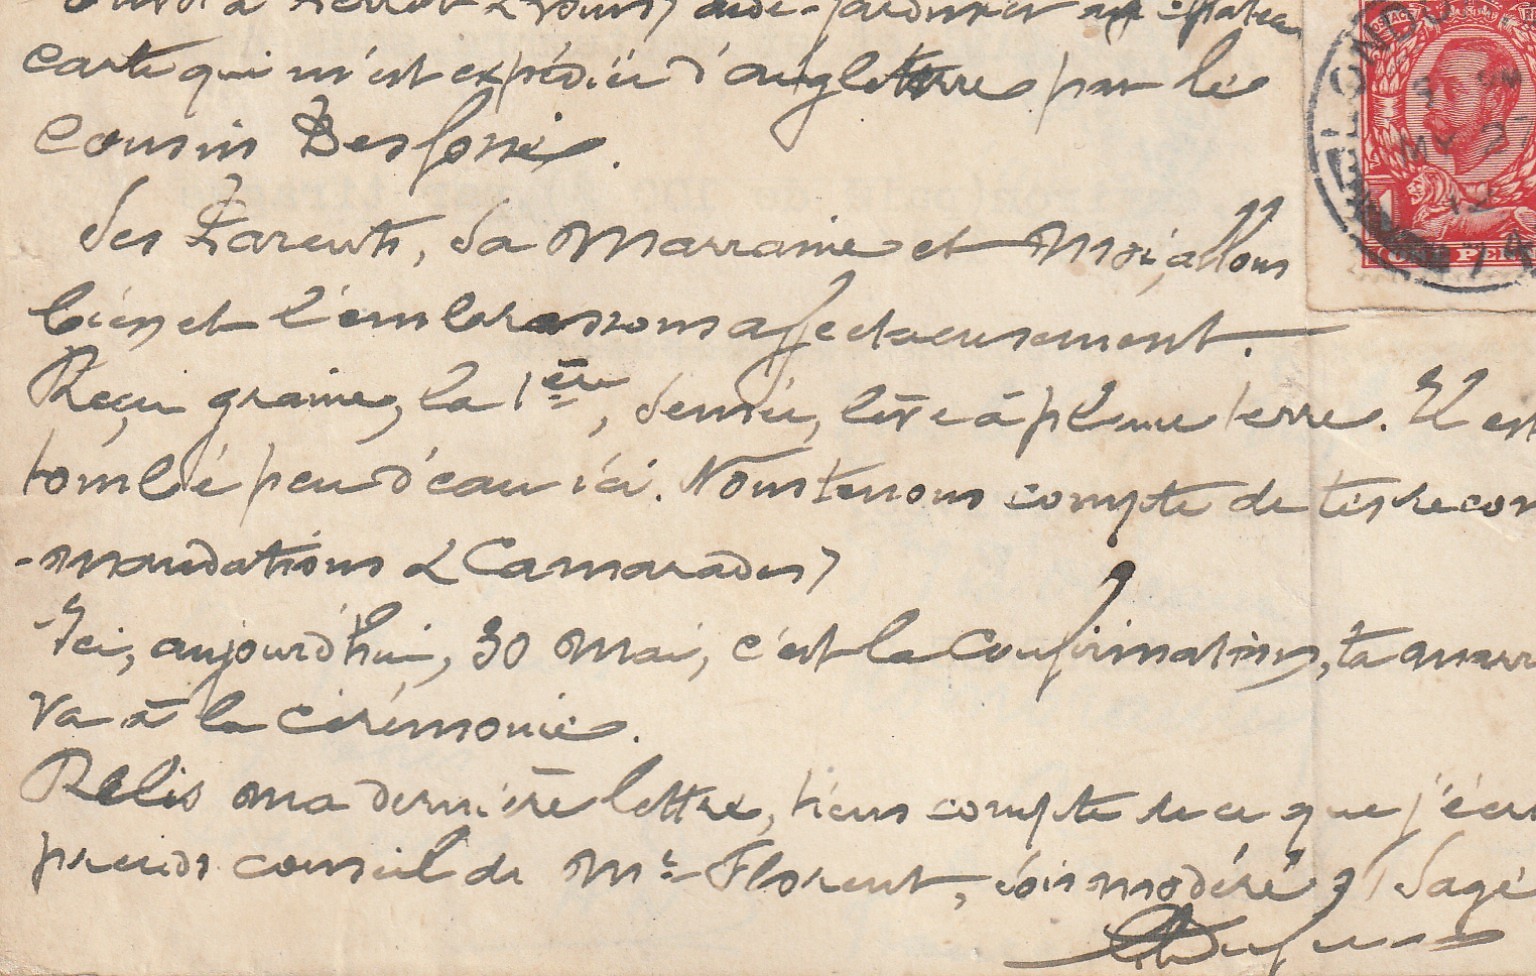 carte qui m'est expédiée d'angleterre par le
Cousin
Ses Parents, sa Marraine et Moi, allons
bien et l'embrassons affectueusement.
Reçu graine, la 1ère, semée, lève à pleine terre. Il est
tombé peu d'eau ici. Nous tenons compte de tes recom
-mandations & Camarades
Ici, aujourd'hui, 30 Mai, c'est la Confirmation, ta marr
va à la Cérémonie.
Relis ma dernière lettre, tiens compte de ce que j'écri
prends conseil de Mr Florent, sois modéré, sage
LONDON
MY 27
12
7 A